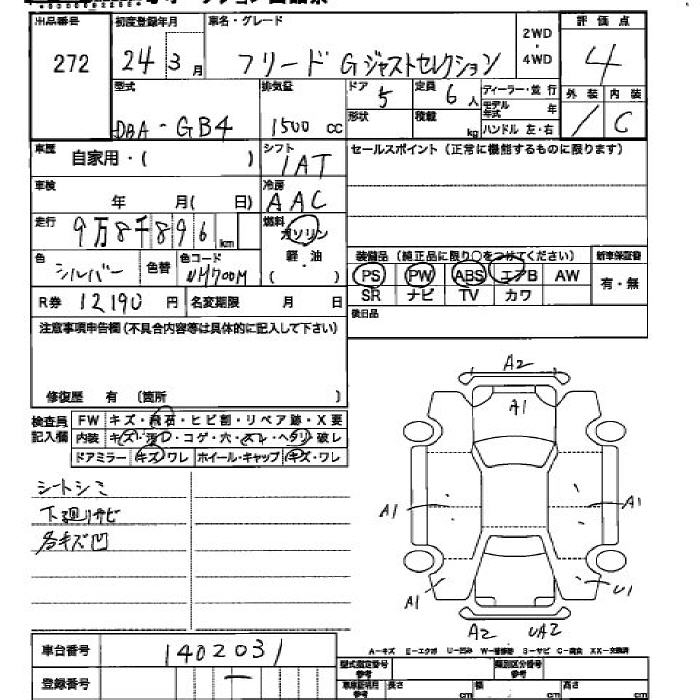 出品番号 初度登録年月 車名・グレード 2WD・4WD 評価点
272 24年3月 フリード Gジャストセレクション 4
型式 排気量 ドア 5 定員 6人 ディーラー・並行 外装 内装
DBA-GB4 1500cc 形状 積載 kg モデル年式 年 ハンドル 左・右 / C
車歴 自家用・( ) シフト IAT セールスポイント(正常に機能するものに限ります)
車検 年 月( 日) 冷房 AAC
走行 9万8千896km 燃料 ガソリン
色 シルバー 色替 色コード NH700M 軽・油 ( )
装備品(純正品に限り○をつけてください) 新車保証書
PS PW ABS エアB AW 有・無
SR ナビ TV カワ
R券 12190円 名変期限 月 日 後日品
注意事項申告欄(不具合内容等は具体的に記入して下さい)
修復歴 有 〔箇所 〕
検査員記入欄 FW キズ・飛石・ヒビ割・リペア跡・X要
内装 キズ・汚レ・コゲ・穴・スレ・ヘタリ・破レ
ドアミラー キズ・ワレ ホイール・キャップ キズ・ワレ
シートシミ
下廻リサビ
各キズ凹
A2
A1
A1 A1
A1 U1
A2 UA2
A-キズ E-エクボ U-凹み W-補修跡 S-サビ C-腐食 XX-交換済
車台番号 1402031
登録番号 —
型式指定番号 参考 類別区分番号 参考
車検証明用 参考 長さ cm 幅 cm 高さ cm